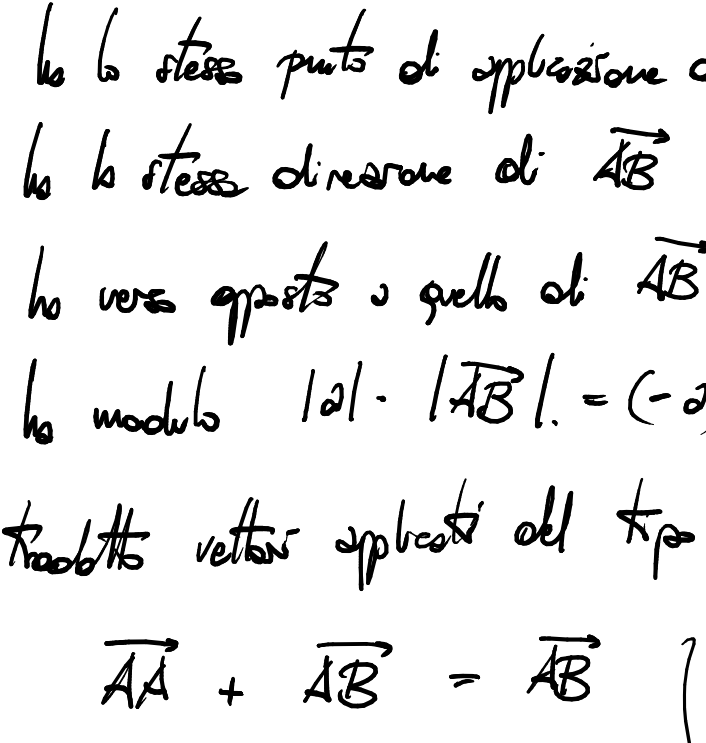 ha lo stesso punto di applicazione
ha la stessa direzione di \overrightarrow{AB}
ha verso opposto a quello di \overrightarrow{AB}
ha modulo |a| · |\overrightarrow{AB}|. = (-a
vettori applicati del tipo
\overrightarrow{AA} + \overrightarrow{AB} = \overrightarrow{AB} (